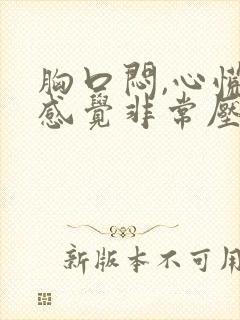 胸口悶,心慌
感覺非常壓
新版本不可用